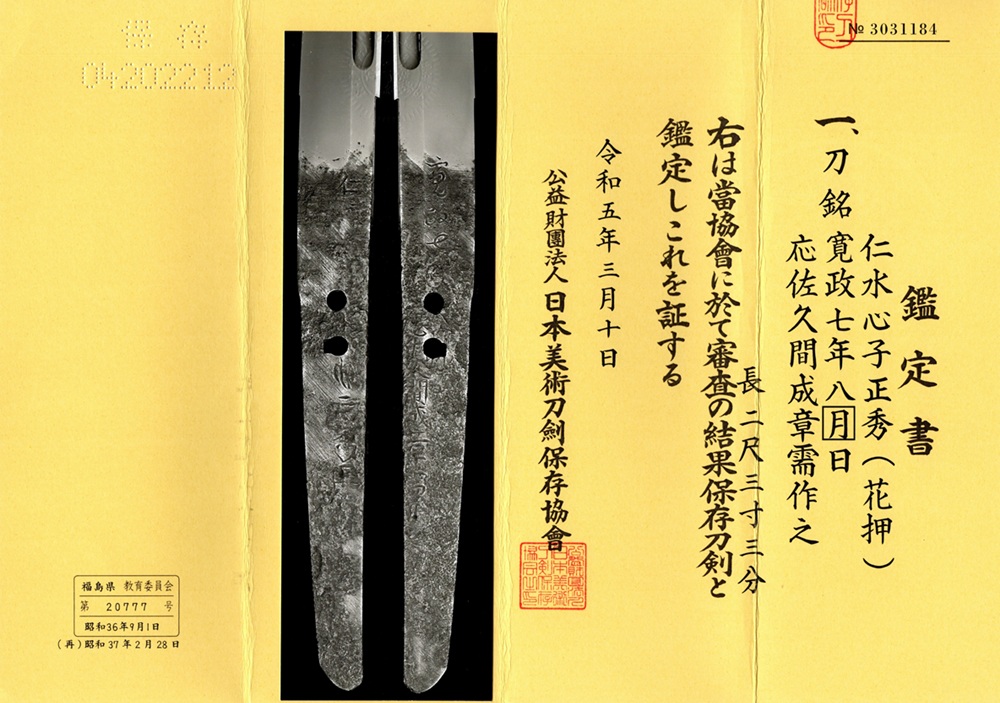 № 3031184
鑑定書
一、刀 銘
仁水心子正秀(花押)
寛政七年八月日
応佐久間成章需作之
長 二尺三寸三分
右は當協會に於て審査の結果保存刀剣と
鑑定しこれを証する
令和五年三月十日
公益財團法人 日本美術刀劍保存協會
保存
04202212
福島県 教育委員会
第 20777 号
昭和36年9月1日
(再)昭和37年2月28日